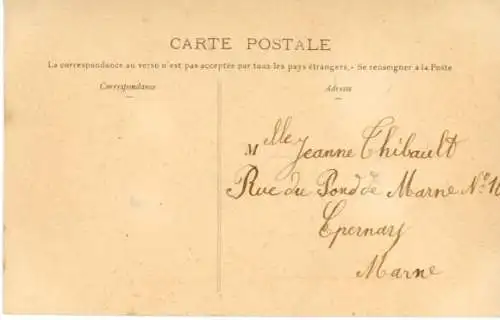 CARTE POSTALE
La correspondance au verso n'est pas acceptée par tous les pays étrangers. - Se renseigner à la Poste
Correspondance
Adresse
Mlle Jeanne Thibault
Rue du Pond de Marne No 10
Epernay
Marne